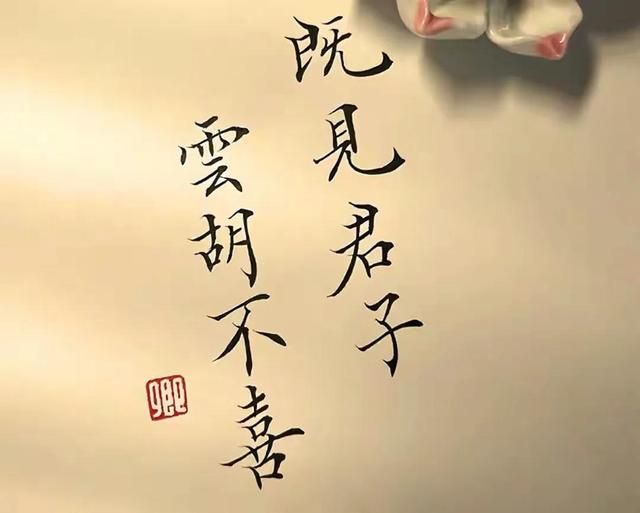 既見君子
雲胡不喜
卿